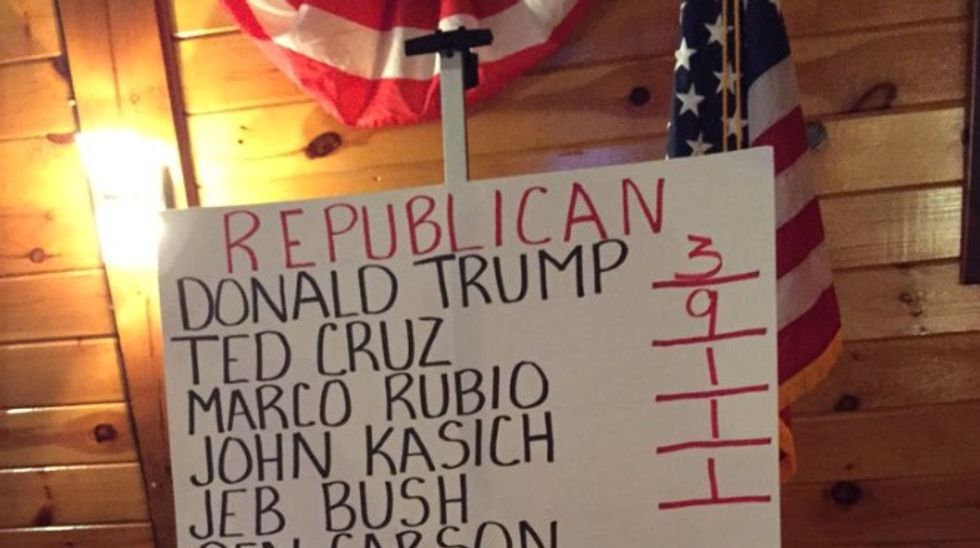 REPUBLICAN
DONALD TRUMP 3
TED CRUZ 9
MARCO RUBIO 1
JOHN KASICH 1
JEB BUSH 1
BEN CARSON